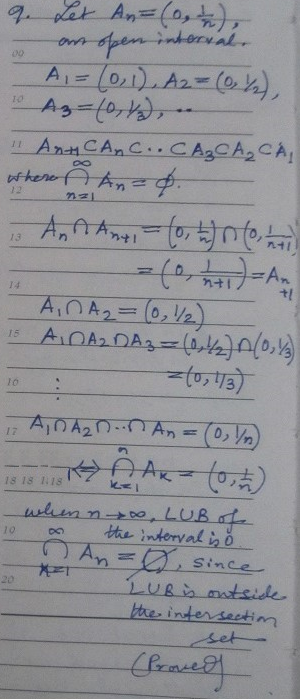 9. Let Aₙ = (0, 1/n),
an open interval.
09
A₁ = (0, 1), A₂ = (0, 1/2),
10 A₃ = (0, 1/3), ..
11 Aₙ₊₁ ⊂ Aₙ ⊂ .. ⊂ A₃ ⊂ A₂ ⊂ A₁
12 where ∞ ⋂ n=1 Aₙ = ϕ.
13 Aₙ ∩ Aₙ₊₁ = (0, 1/n) ∩ (0, 1/n+1)
= (0, 1/n+1) = Aₙ₊₁
14
A₁ ∩ A₂ = (0, 1/2)
15 A₁ ∩ A₂ ∩ A₃ = (0, 1/2) ∩ (0, 1/3)
= (0, 1/3)
16 ⋮
17 A₁ ∩ A₂ ∩ ·· ∩ Aₙ = (0, 1/n)
18 ⇔ n ⋂ k=1 Aₖ = (0, 1/n)
when n → ∞, LUB of
19 the interval is 0.
∞ ⋂ n=1 Aₙ = ∅, since
20 LUB is outside
the intersection
set
(Proved)